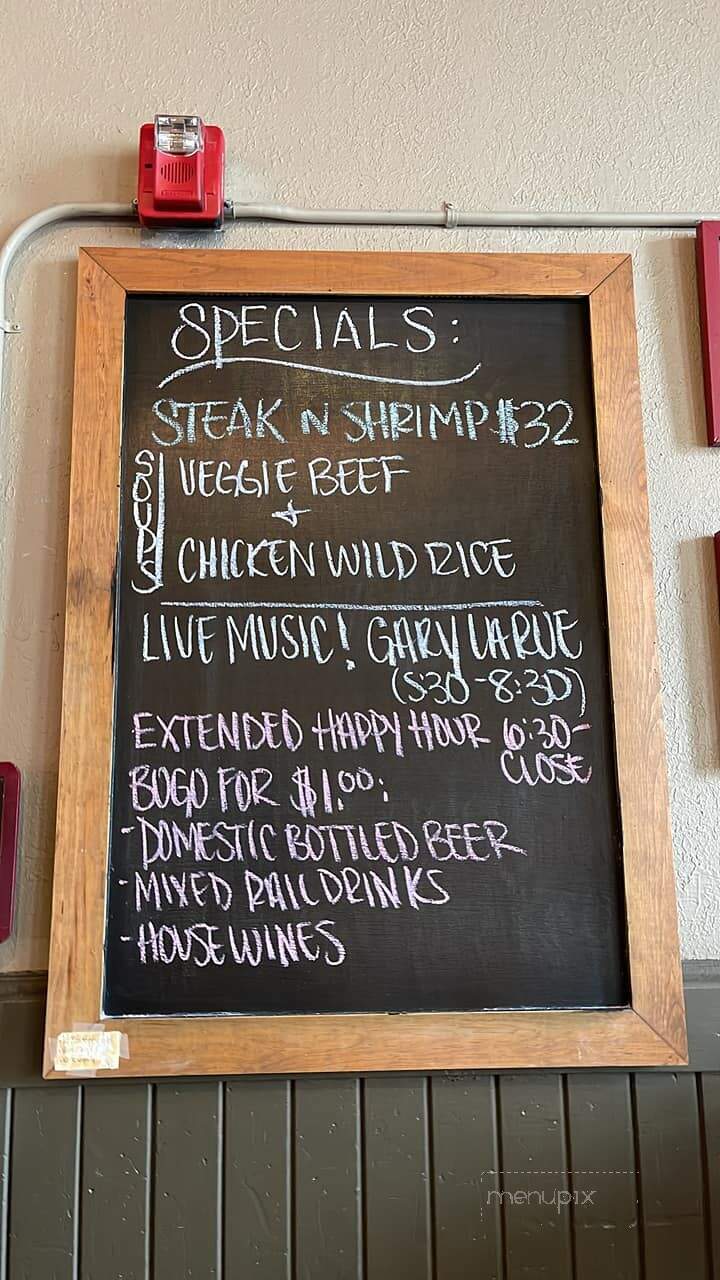 SPECIALS:
STEAK N SHRIMP $32
SOUPS
VEGGIE BEEF
+
CHICKEN WILD RICE
LIVE MUSIC! GARY LARUE
(5:30-8:30)
EXTENDED HAPPY HOUR 6:30-
CLOSE
BOGO FOR $1.00:
-DOMESTIC BOTTLED BEER
-MIXED RAIL DRINKS
-HOUSE WINES
menupix